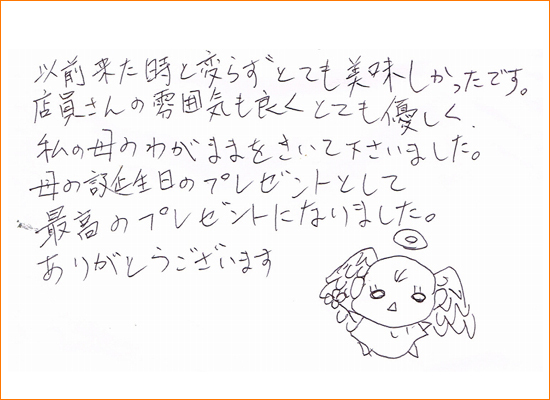 以前来た時と変らずとても美味しかったです。
店員さんの雰囲気も良くとても優しく
私の母のわがままをきいて下さいました。
母の誕生日のプレゼントとして
最高のプレゼントになりました。
ありがとうございます